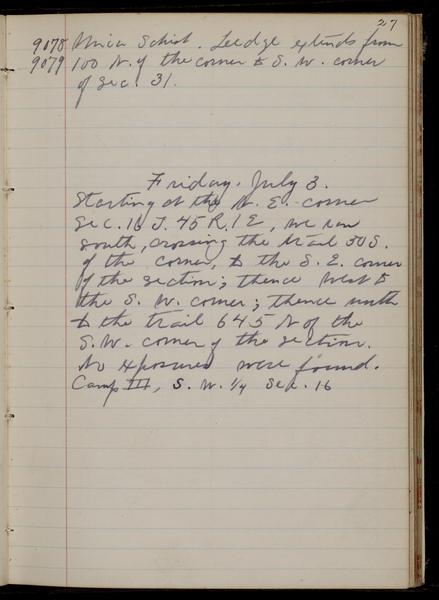 27
9078 Mica Schist. Ledge extends from
9079 100 N. of the corner to S. W. corner
of Sec. 31.
Friday, July 3.
Starting at the N. E. corner
Sec. 16 T. 45 R. 1 E, we ran
south, crossing the trail 50 S.
of the corner, to the S. E. corner
of the section; thence west to
the S. W. corner; thence north
to the trail 645 N of the
S. W. corner of the section.
No exposures were found.
Camp III, S. W. 1/4 Sec. 16